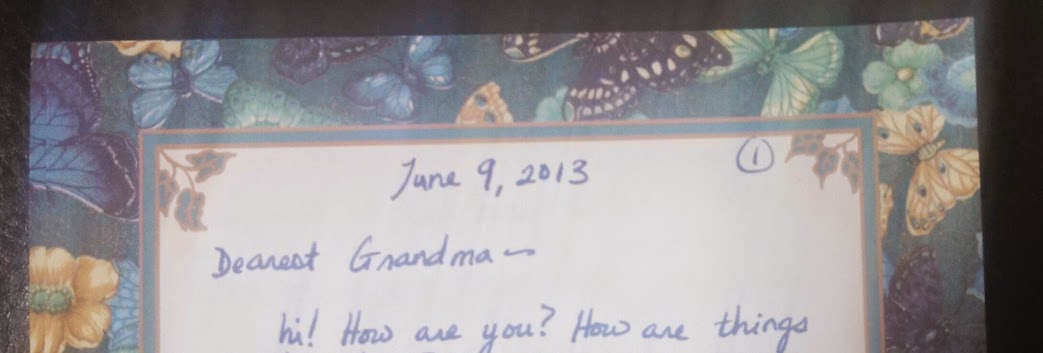 June 9, 2013 1
Dearest Grandma~
hi! How are you? How are things